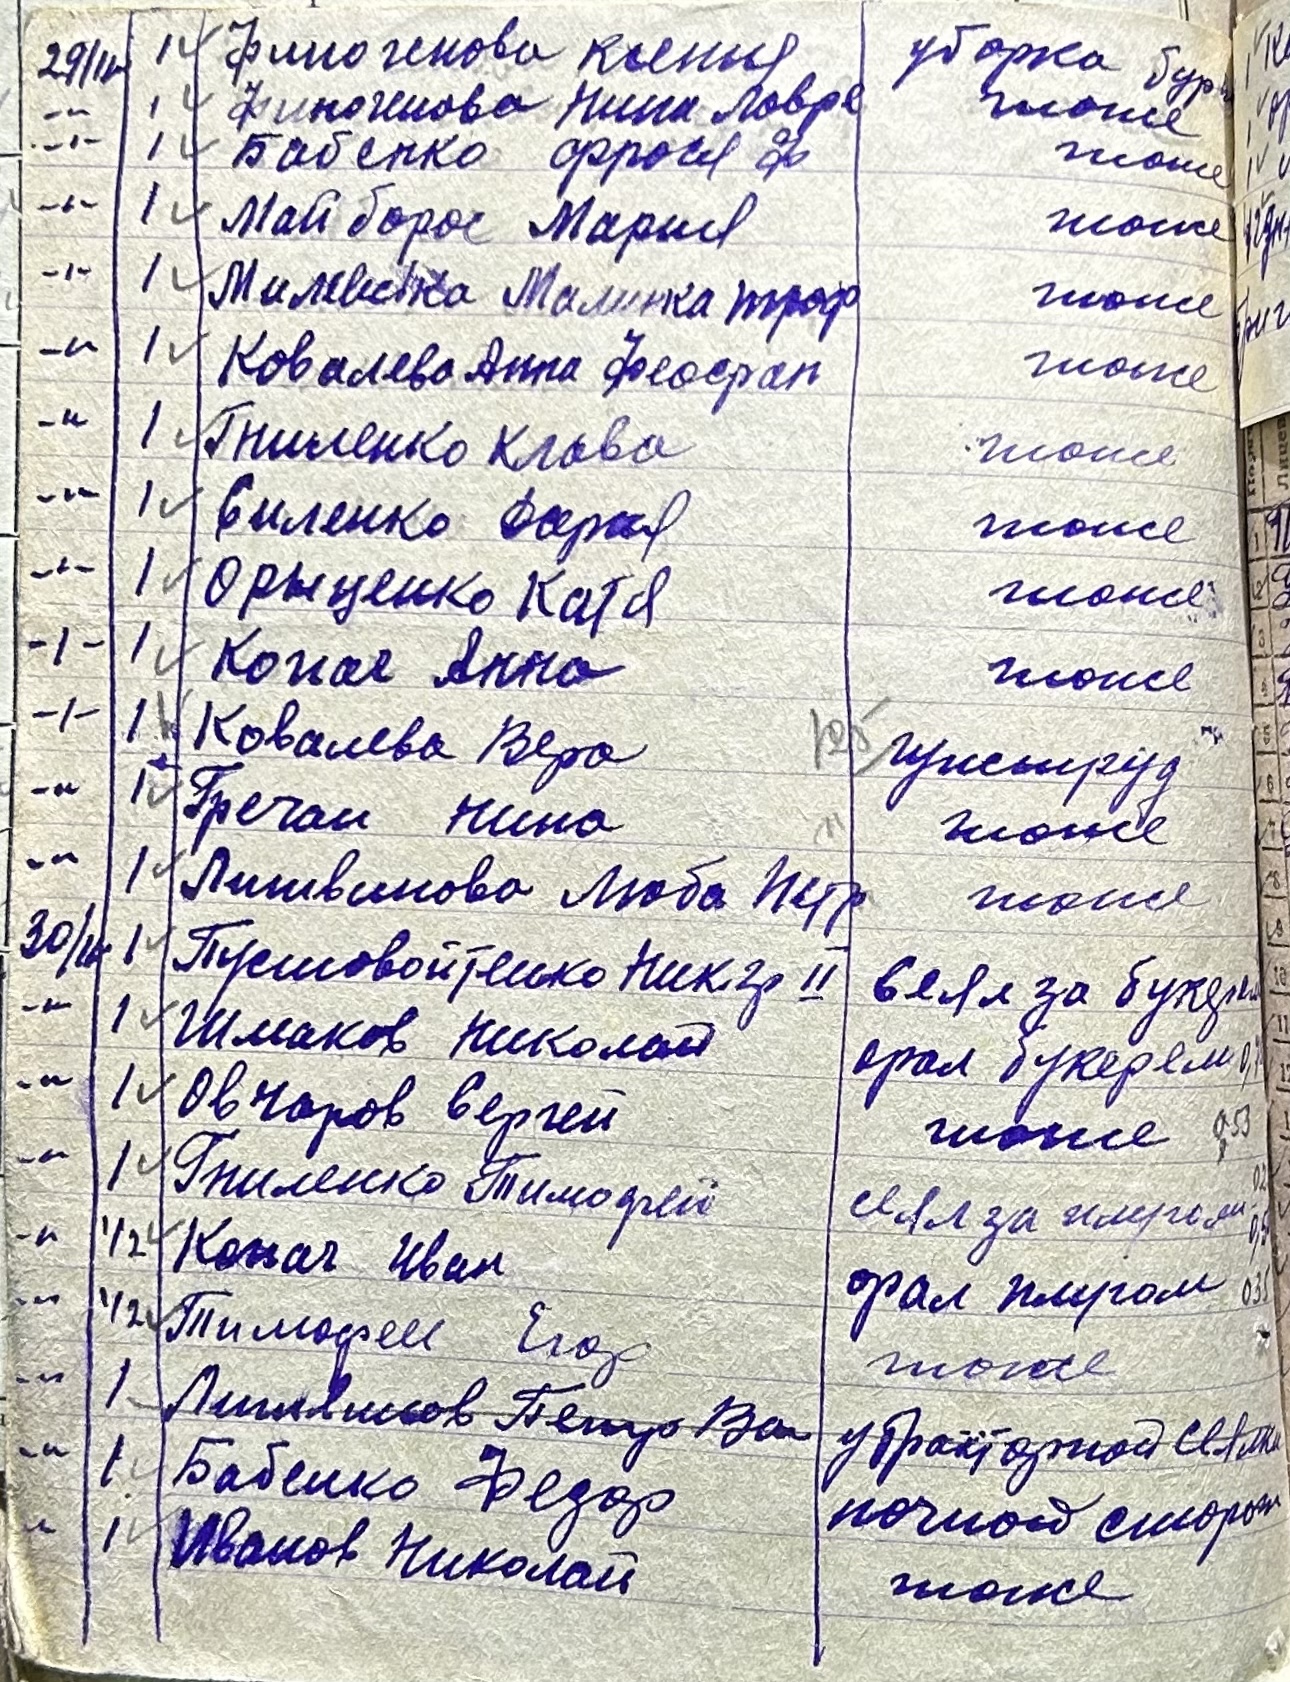 29/III 1 Финогенова Ксения уборка бурь
-"- 1 Финогенова Нина Лавре тоже
-"- 1 Бабенко Фрося Ф тоже
-"- 1 Майборос Мария тоже
-"- 1 Малинка троф тоже
-"- 1 Ковалева Анна Феофан тоже
-"- 1 Гниленко Клава тоже
-"- 1 Силенко Дарья тоже
-"- 1 Орыщенко Катя тоже
-"- 1 Копач Анна тоже
-"- 1 Ковалева Вера 125 гужтруд
-"- 1 Гречан Нина тоже
-"- 1 Литвинова Люба Петр тоже
30/III 1 Пустовойтенко Ник гр II сеял за букером
-"- 1 Шмаков Николай орал букером
-"- 1 Овчаров Сергей тоже 0,53
-"- 1 Гниленко Тимофей сеял за плугом
-"- 1/2 Копач Иван орал плугом 035
-"- 1/2 Тимофеи Егор тоже
-"- 1 Петро Ва у тракторной сеялки
-"- 1 Бабенко Федор ночной сторож
-"- 1 Иванов Николай тоже